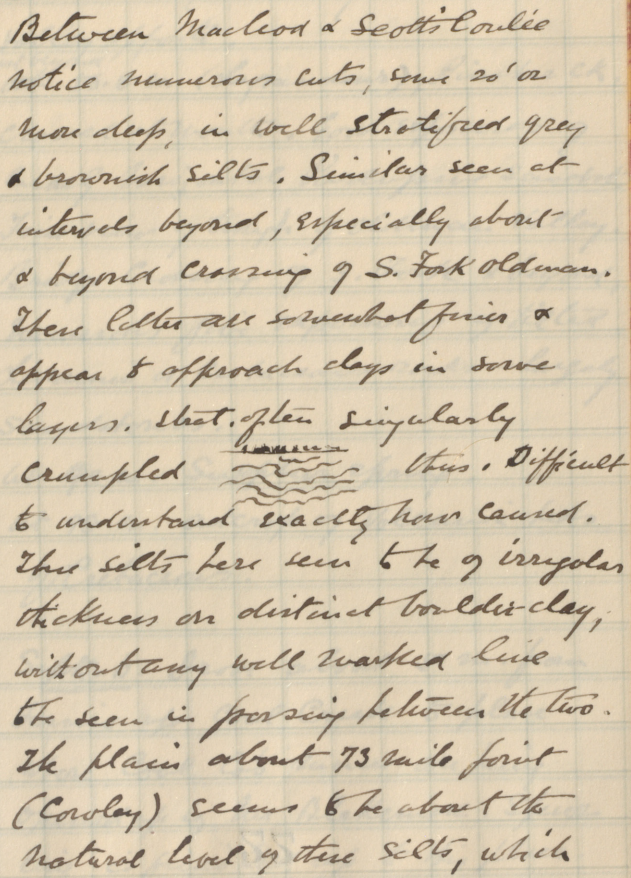 Between Macleod & Scott's Coulée
notice numerous cuts, some 20' or
more deep, in well stratified grey
& brownish silts. Similar seen at
intervals beyond, especially about
& beyond crossing of S. Fork Oldman.
These latter are somewhat finer &
appear to approach clays in some
layers. Strat. often singularly
crumpled thus. Difficult
to understand exactly how caused.
These silts here seem to be of irregular
thickness on distinct boulder-clay,
without any well marked line
to be seen in passing between the two.
The plain about 73 mile point
(Cowley) seems to be about the
natural level of these silts, which